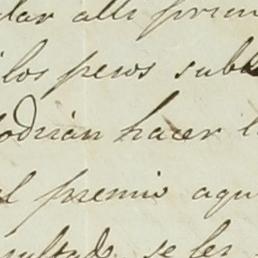 dar alli prim
los pesos sub
podrian hacer l
el premio aqu
resultado se les